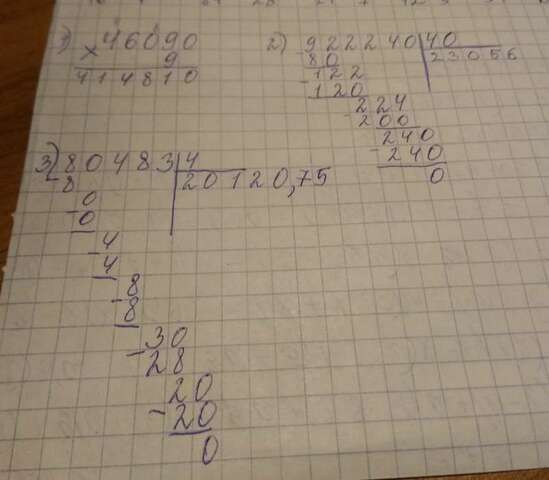 1) 46090
× 9
414810
2) 922240 40
80 23056
- 122
120
- 224
200
- 240
240
0
3) 80483 4
8 20120,75
- 0
0
- 4
4
- 8
8
- 30
28
- 20
20
0